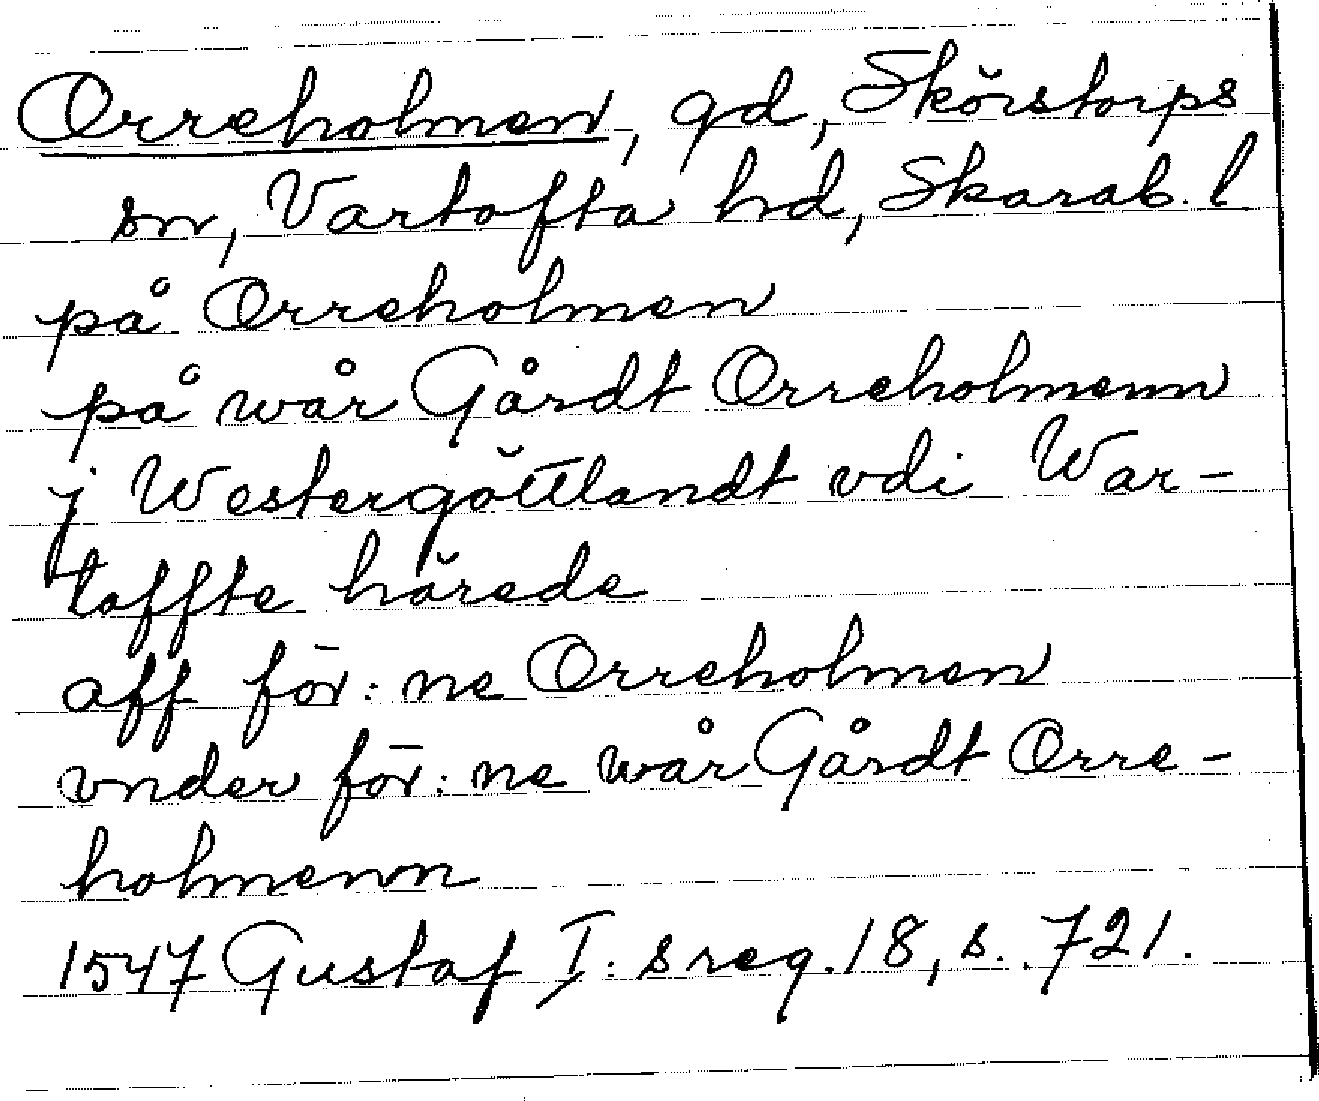 Orreholmen, gd, Skörstorps
sn, Vartofta hd, Skarab. l
på Orreholmen
på wår Gårdt Orreholmenn
j Westergöttlandt vdi War-
toffte härede
aff för: ne Orreholmen
vnder för: ne wår Gårdt Orre-
holmenn
1547 Gustaf I: s reg. 18, s. 721.